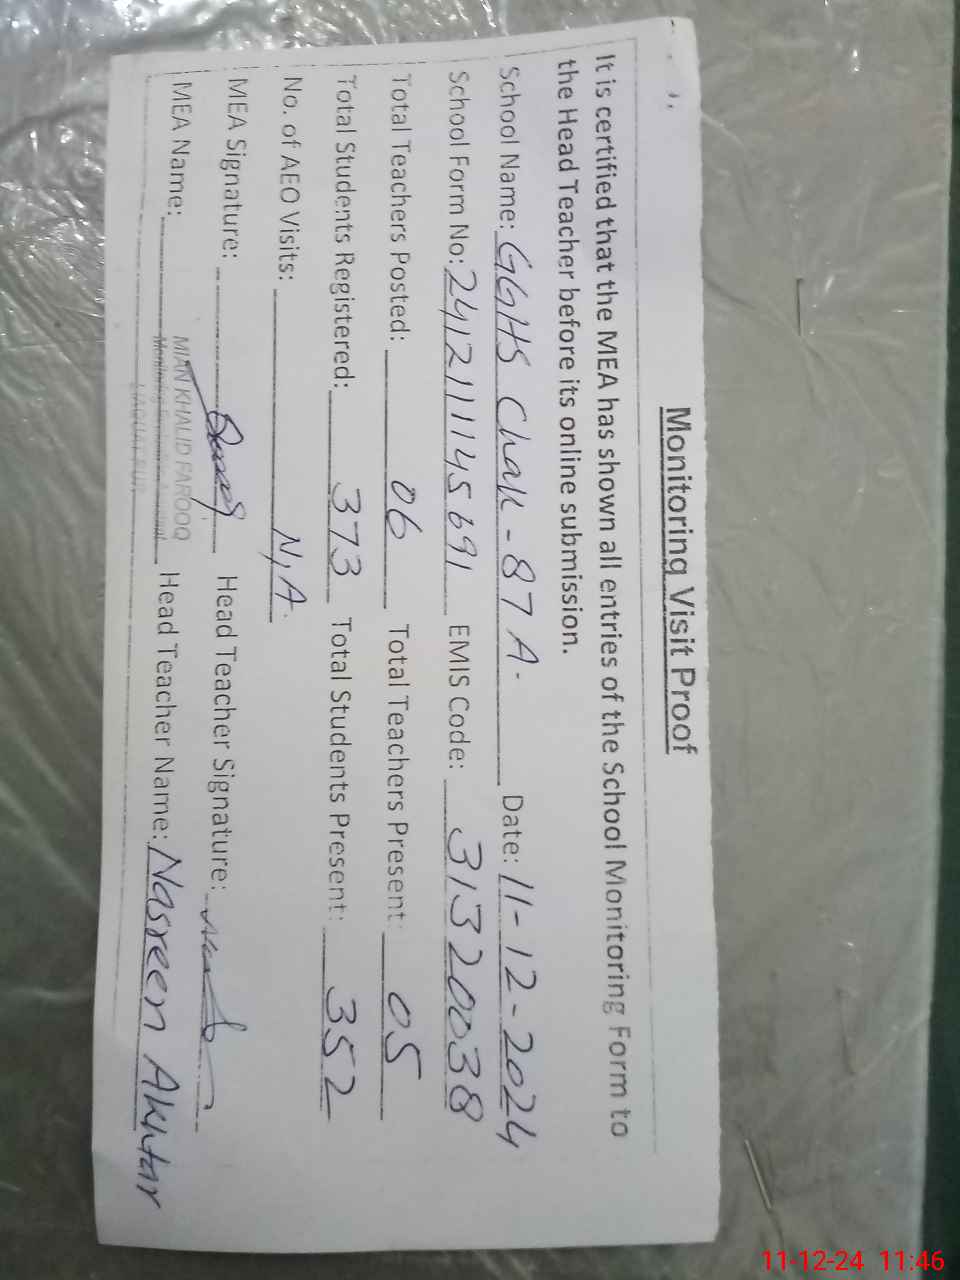 Monitoring Visit Proof
It is certified that the MEA has shown all entries of the School Monitoring Form to
the Head Teacher before its online submission.
School Name: GGHS Chak - 87 A. Date: 11-12-2024
School Form No: 241211145691 EMIS Code: 31320038
Total Teachers Posted: 06 Total Teachers Present: 05
Total Students Registered: 373 Total Students Present: 352
No. of AEO Visits: N,A.
MEA Signature: Head Teacher Signature:
MEA Name: MIAN KHALID FAROOQ Head Teacher Name: Nasreen Akhtar
LIAQUATPUR
11-12-24 11:46